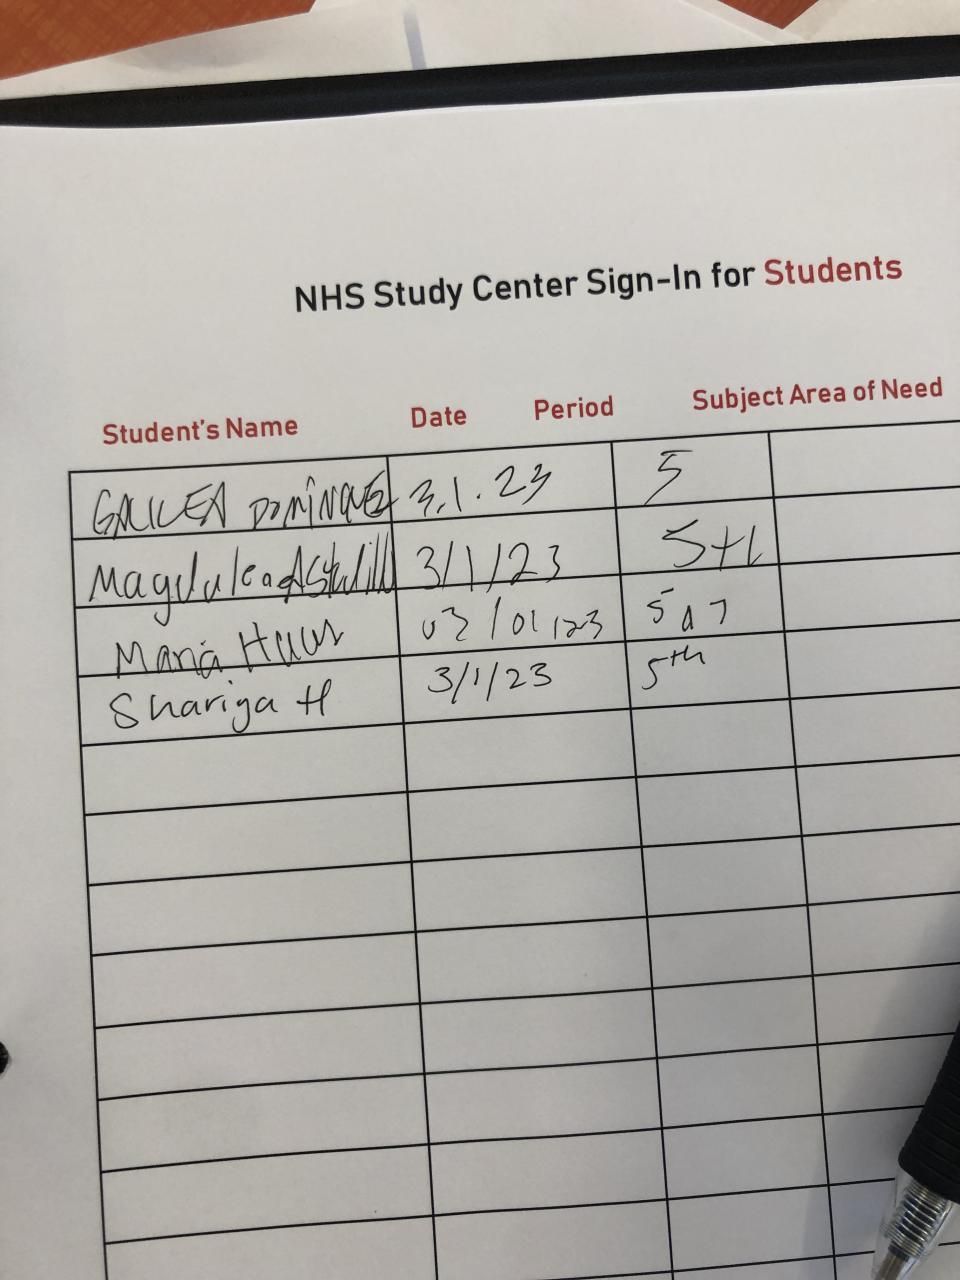 NHS Study Center Sign-In for Students
Student's Name Date Period Subject Area of Need
GALILEA DOMINGUEZ 3.1.23 5
3/1/23 5th
Maria 03/01/23 5
Shariga H 3/1/23 5th